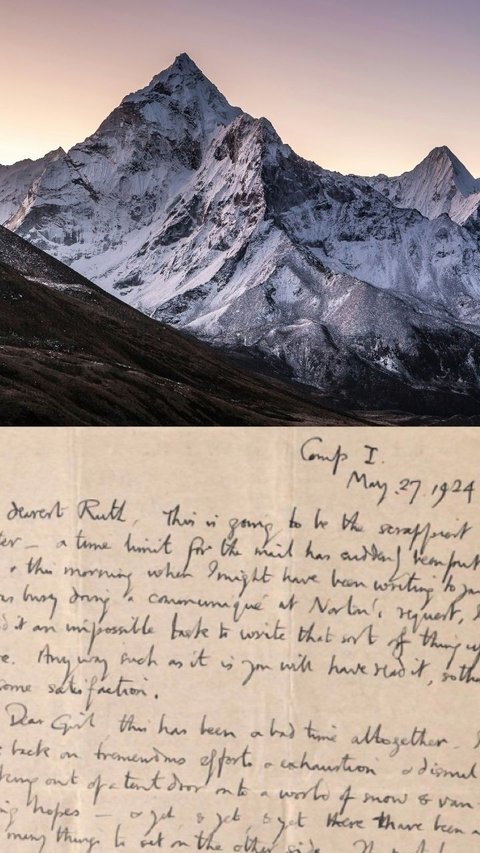 Camp I.
May. 27. 1924
dearest Ruth, This is going to be the scrappiest
ter – a time limit for the mail has suddenly been put
& this morning when I might have been writing to you
busy doing a communiqué at Norton's request, I
d it an impossible task to write that sort of thing up
re. Anyway such as it is you will have read it, so tha
some satisfaction.
Dear Girl this has been a bad time altogether. I
back on tremendous efforts & exhaustion & dismal
king out of a tent door on to a world of snow & van
ng hopes – & yet, & yet, & yet there have been a
many things to set on the other side.